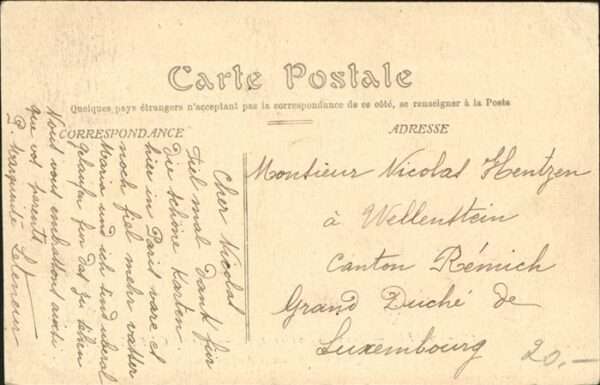 Carte Postale
Quelques pays étrangers n'acceptant pas la correspondance de ce côté, se renseigner à la Poste
CORRESPONDANCE
ADRESSE
Cher Nicolas
Fiel mal Dank für
Die schöne Karten.
hier in Paris vare et
noch fiel mehr
Maria und ich sind uberal
für das zu sehen
Nous vous embrassons ainsi
que vos parents
P. Marguerite
Monsieur Nicolas Hentzen
à Wellenstein
Canton Rémich
Grand Duché de
Luxembourg
20.-